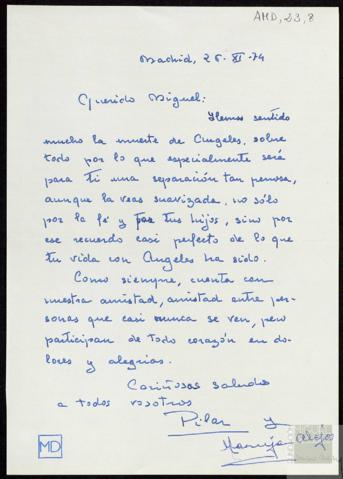 AMD, 23, 8
Madrid, 26-XI-74
Querido Miguel:
Hemos sentido
mucho la muerte de Angeles, sobre
todo por lo que especialmente será
para ti una separación tan penosa,
aunque la veas suavizada, no sólo
por la fé y por tus hijos, sino por
ese recuerdo casi perfecto de lo que
tu vida con Angeles ha sido.
Como siempre, cuenta con
nuestra amistad, amistad entre per-
sonas que casi nunca se ven, pero
participan de todo corazón en do-
lores y alegrias.
Cariñosos saludos
a todos vosotros
Pilar y
Maruja
MD